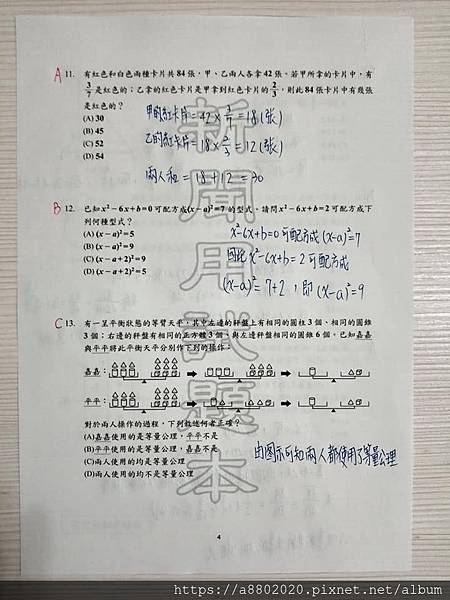 A 11. 有紅色和白色兩種卡片共84張,甲、乙兩人各拿42張。若甲所拿的卡片中,有
3/7是紅色的;乙拿的紅色卡片是甲拿到紅色卡片的2/3,則此84張卡片中有幾張
是紅色的?
(A) 30
(B) 45
(C) 52
(D) 54
甲的紅卡片=42×3/7=18(張)
乙的紅卡片=18×2/3=12(張)
兩人和=18+12=30
B 12. 已知x²-6x+b=0可配方成(x-a)²=7的型式,請問x²-6x+b=2可配方成下
列何種型式?
(A) (x-a)²=5
(B) (x-a)²=9
(C) (x-a+2)²=9
(D) (x-a+2)²=5
x²-6x+b=0可配方成(x-a)²=7
因此x²-6x+b=2可配方成
(x-a)²=7+2,即(x-a)²=9
C 13. 有一呈平衡狀態的等臂天平,其中左邊的秤盤上有相同的圓柱3個、相同的圓錐
3個;右邊的秤盤有相同的正方體3個、與左邊秤盤相同的圓錐6個。已知嘉嘉
與平平將此平衡天平分別作下列的操作:
嘉嘉:
平平:
對於兩人操作的過程,下列敘述何者正確?
(A)嘉嘉使用的是等量公理,平平不是
(B)平平使用的是等量公理,嘉嘉不是
(C)兩人使用的均是等量公理
(D)兩人使用的均不是等量公理
由图示可知兩人都使用了等量公理
新聞用試題本
4
https://a8802020.pixnet.net/album